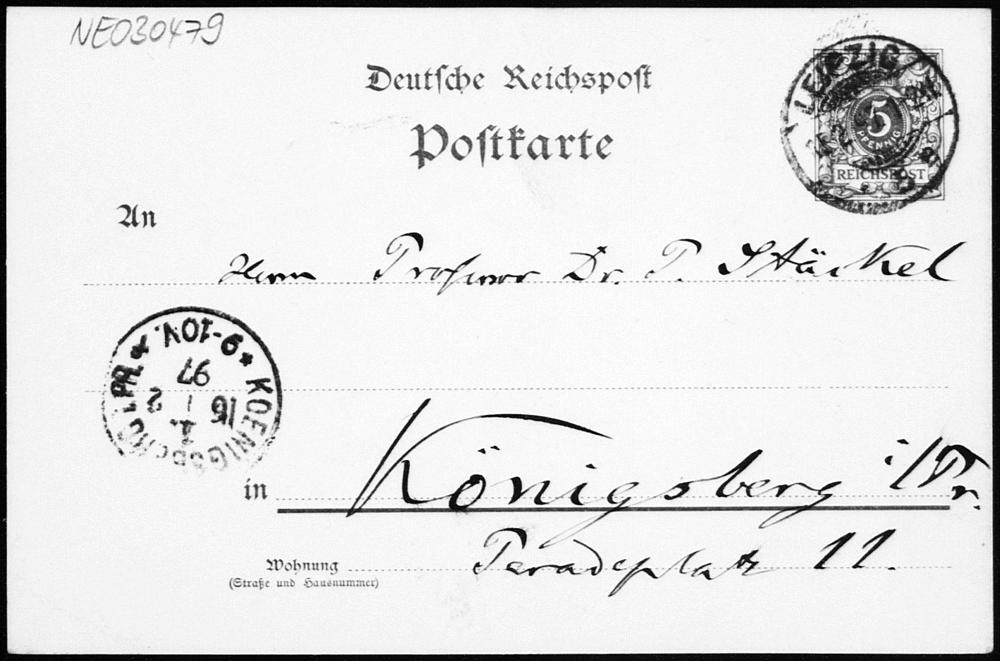 NEO30479
Deutsche Reichspost
Postkarte
LEIPZIG
5
PFENNIG
REICHSPOST
An
Herrn Professor Dr. P. Stäckel
KOENIGSBERG I. PR. * 9-10V. *
16 2
97
1.
in Königsberg i/Pr.
Wohnung Paradeplatz 11.
(Straße und Hausnummer)